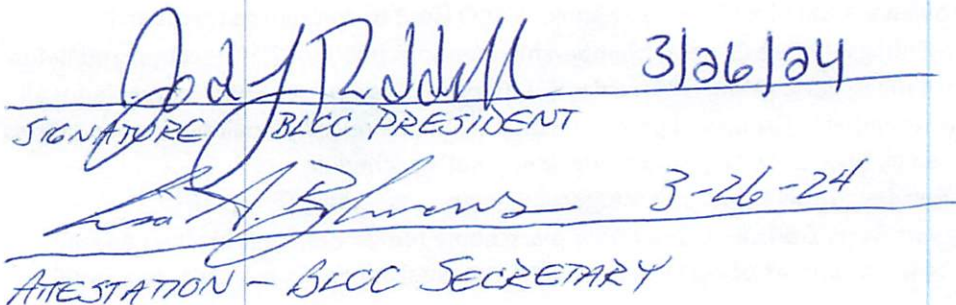 Jody Riddell 3/26/24
SIGNATURE / BLCC PRESIDENT
3-26-24
ATTESTATION - BLCC SECRETARY